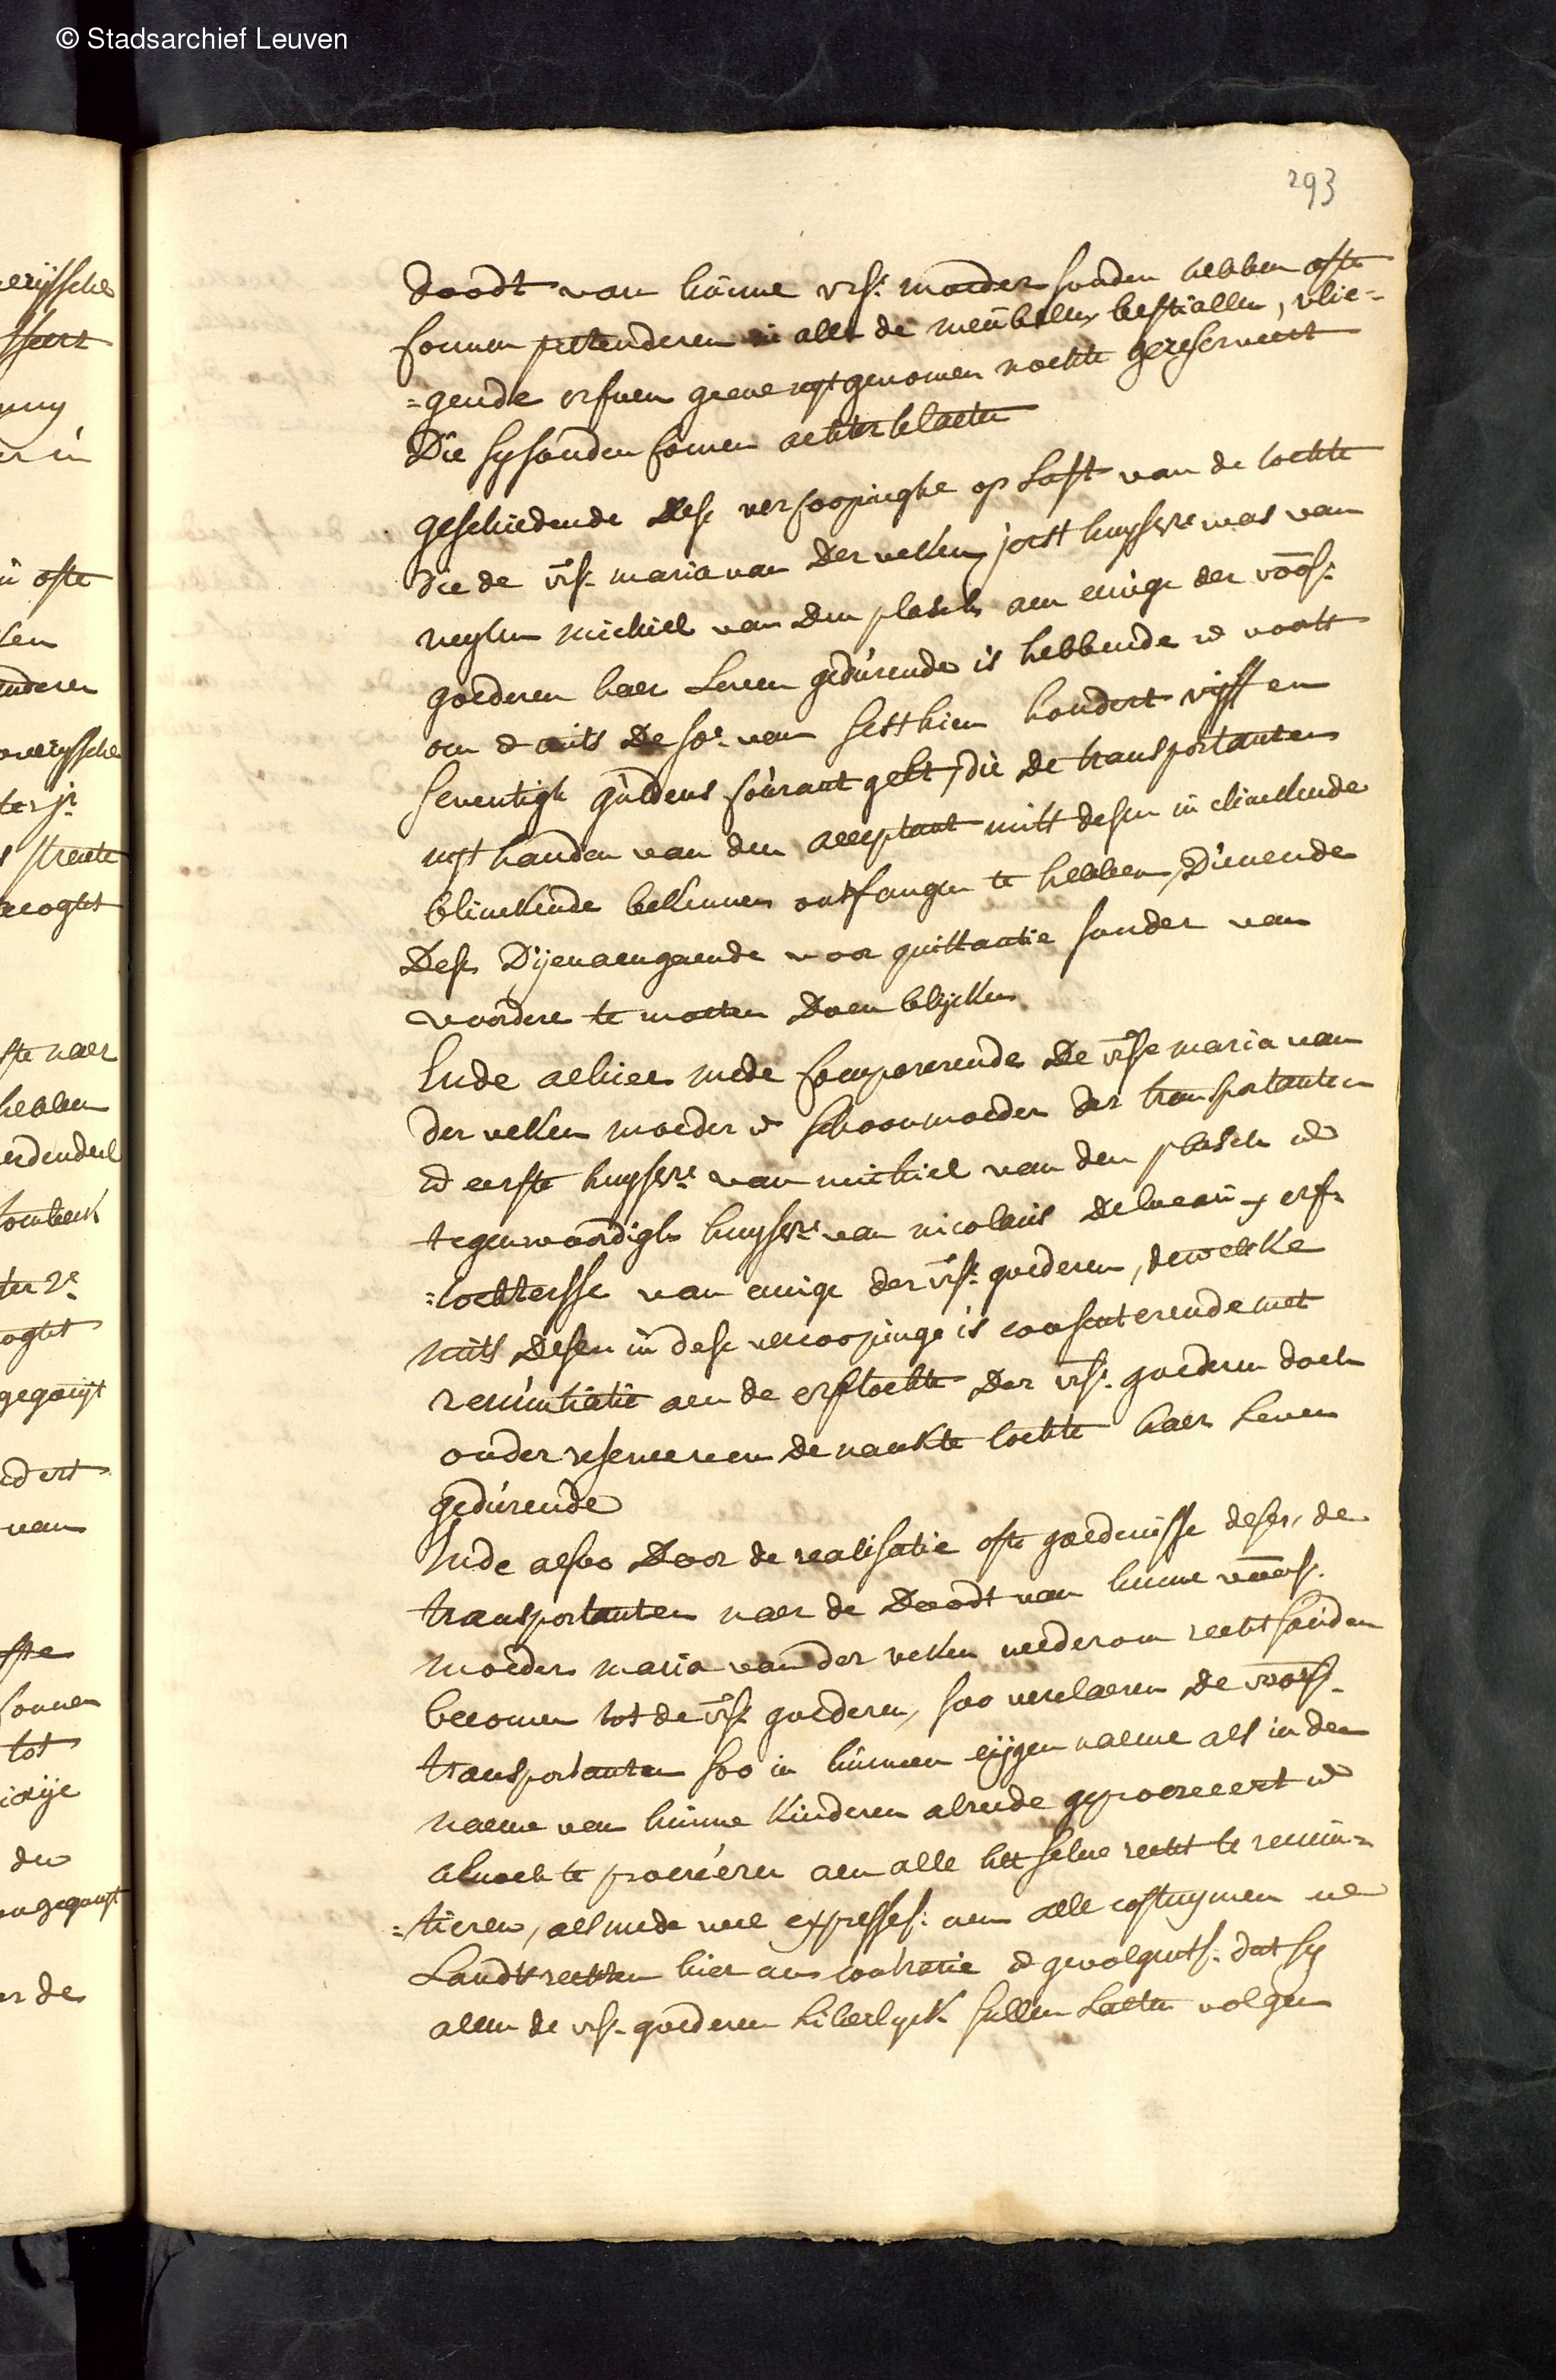 © Stadsarchief Leuven
293
doodt van hünne vrs: moeder souden hebben ofte
connen pretenderen in alle de meübelen bestiallen, vlie=
=gende erfven geene uyt genomen nochte gereserveert
Die sy souden comen achter te laeten
geschiedende dese vercoopinghe op last van de tochte
die de vrs: maria van der veken jerst huysvre was van
wylen michiel van den plasch aen eenige der voors:
goederen haer leven gedürende is hebbende en voorts
om & mits de so: van sesthien hondert vyff en
seventigh güldens coürant gelt, die de transportanten
uyt handen van den acceptant mits desen in clinckende
blinckende bekennen ontfangen te hebben, dienende
dese dijenaengaende voor quittantie sonder van
voordere te moeten doen blycken
Ende alhier mede comparerende de vrse maria van
der veken moeder en schoonmoeder der transportanten
en eerste huysvre van michiel van den plasch en
tegenwoordigh huysvre van nicolaüs erf=
=tochtersse van eenige der vrs: goederen, dewelcke
mits desen in dese vercoopinge is consenterende met
renüntiatie aen de erftochte der vrs: goederen doch
onder reserveren de naekte tochte haer leven
gedürende
Ende alsoo door de realisatie ofte goedenisse deser, de
transportanten naer de doodt van hunne voors:
moeder maria van der veken wederom recht soüden
becomen tot de vrs: goederen, soo verclaeren de voors:
transportanten soo in hünnen eygen naeme als in den
naeme van hünne kinderen alreede geprocreeert en
alnoch te procreëren aen alle het selve recht te renün=
=tieren, als mede wel expresses: aen alle costuymen en
Landtrechten hier aen contrarie en gevolgents: dat sy
alen de vrs: goederen liberlyck sullen laeten volgen